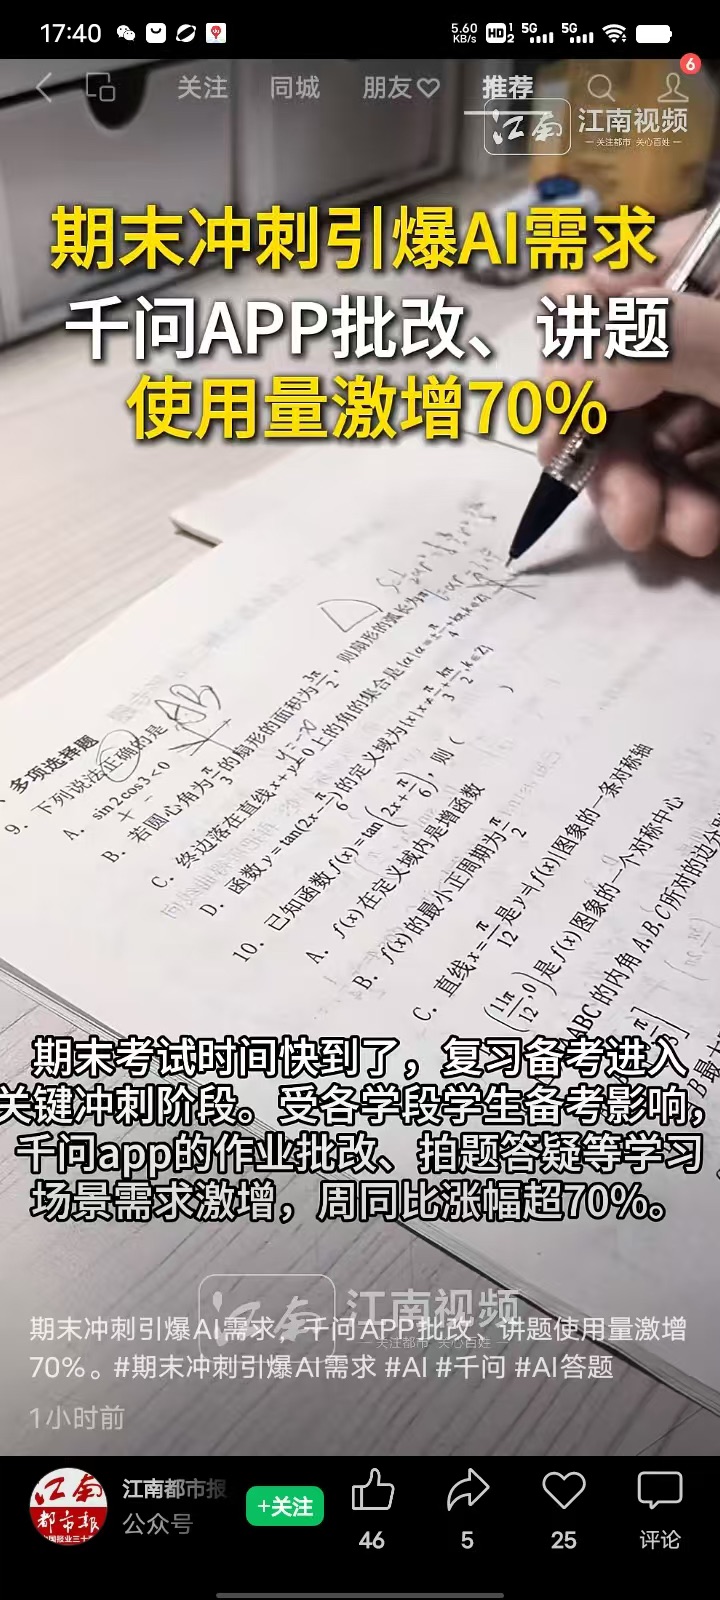 17:40
5.60
KB/s
HD 1 2
5G
5G
6
关注
同城
朋友
推荐
江南
江南视频
关注都市 关心百姓
期末冲刺引爆AI需求
千问APP批改、讲题
使用量激增70%
多项选择题
9. 下列说法正确的是
AB
A. sin2cos3<0
B. 若圆心角为π/3的扇形的面积为3π/2，则扇形的弧长为π
C. 终边落在直线x+y=0上的角的集合是
D. 函数y=tan(2x-π/6)的定义域为{x|x≠π/3+kπ/2,k∈Z}
10. 已知函数f(x)=tan(2x+π/6)，则（ ）
A. f(x)在定义域内是增函数
B. f(x)的最小正周期为π/2
C. 直线x=π/12是y=|f(x)|图象的一条对称轴
(11π/12,0)是f(x)图象的一个对称中心
ABC的内角A,B,C所对的边分
期末考试时间快到了，复习备考进入
关键冲刺阶段。受各学段学生备考影响，
千问app的作业批改、拍题答疑等学习
场景需求激增，周同比涨幅超70%。
江南
江南视频
关注都市 关心百姓
期末冲刺引爆AI需求，千问APP批改、讲题使用量激增
70%。#期末冲刺引爆AI需求 #AI #千问 #AI答题
1小时前
江南
都市报
江南都市报
公众号
+关注
46
5
25
评论